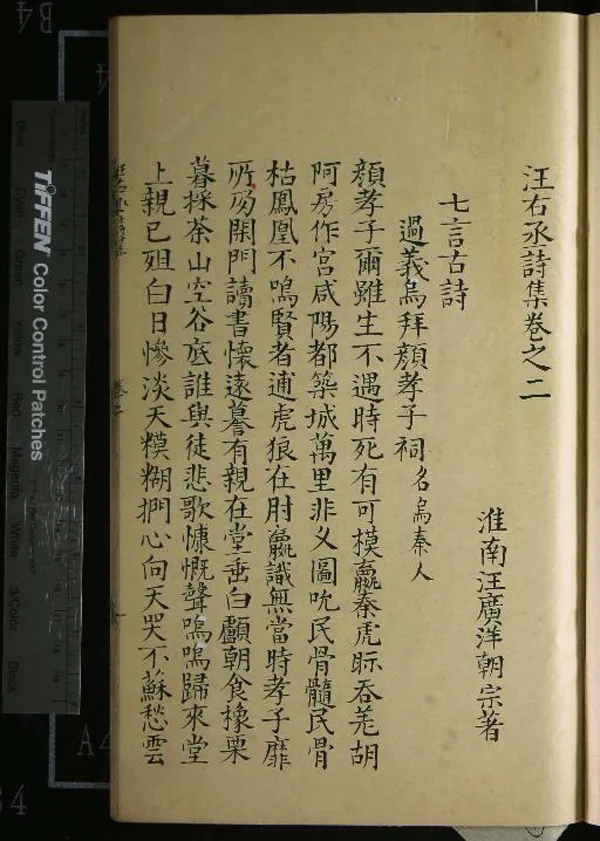 汪右丞詩集卷之二
淮南汪廣洋朝宗著
七言古詩
過義烏拜顏孝子祠名烏秦人
顏孝子爾雖生不遇時死有可模嬴秦虎眎吞羌胡
阿房作宮咸陽都築城萬里非乂圖吮民骨髓民骨
枯鳳凰不鳴賢者逋虎狼在肘嬴識無當時孝子靡
所為閑門讀書懷遠蓦有親在堂垂白顱朝食橡栗
暮採茶山空谷底誰與徒悲歌慷慨聲嗚嗚歸來堂
上親已殂白日慘淡天糢糊捫心向天哭不蘇愁雲
TIFFEN Color Control Patches
Blue Cyan Green Yellow Red Magenta White 3/Color Black
B4
A4